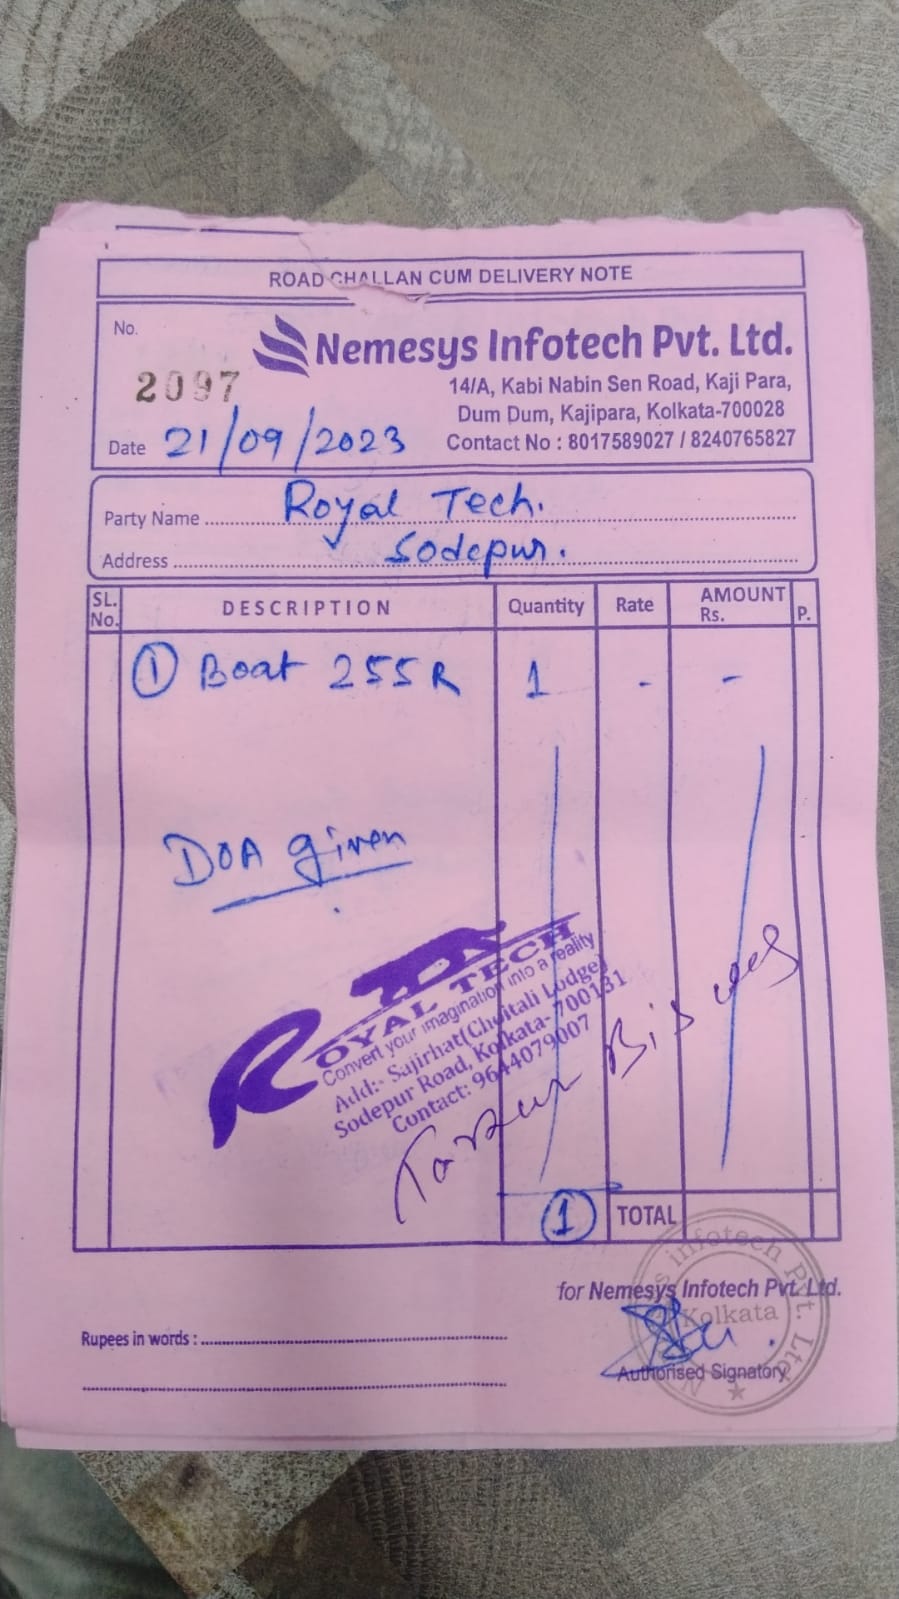 ROAD CHALLAN CUM DELIVERY NOTE
No.
2097
Nemesys Infotech Pvt. Ltd.
14/A, Kabi Nabin Sen Road, Kaji Para,
Dum Dum, Kajipara, Kolkata-700028
Contact No : 8017589027 / 8240765827
Date 21/09/2023
Party Name Royal Tech.
Address Sodepur.
SL. No. DESCRIPTION Quantity Rate AMOUNT Rs. P.
① Boat 255R 1 - -
DOA given
ROYAL TECH
Convert your imagination into a reality
Add:- Sajirhat(Chaitali Lodge)
Sodepur Road, Kolkata- 700131
Contact: 9644079007
Biswas
① TOTAL
for Nemesys Infotech Pvt. Ltd.
Kolkata
Rupees in words :
Authorised Signatory